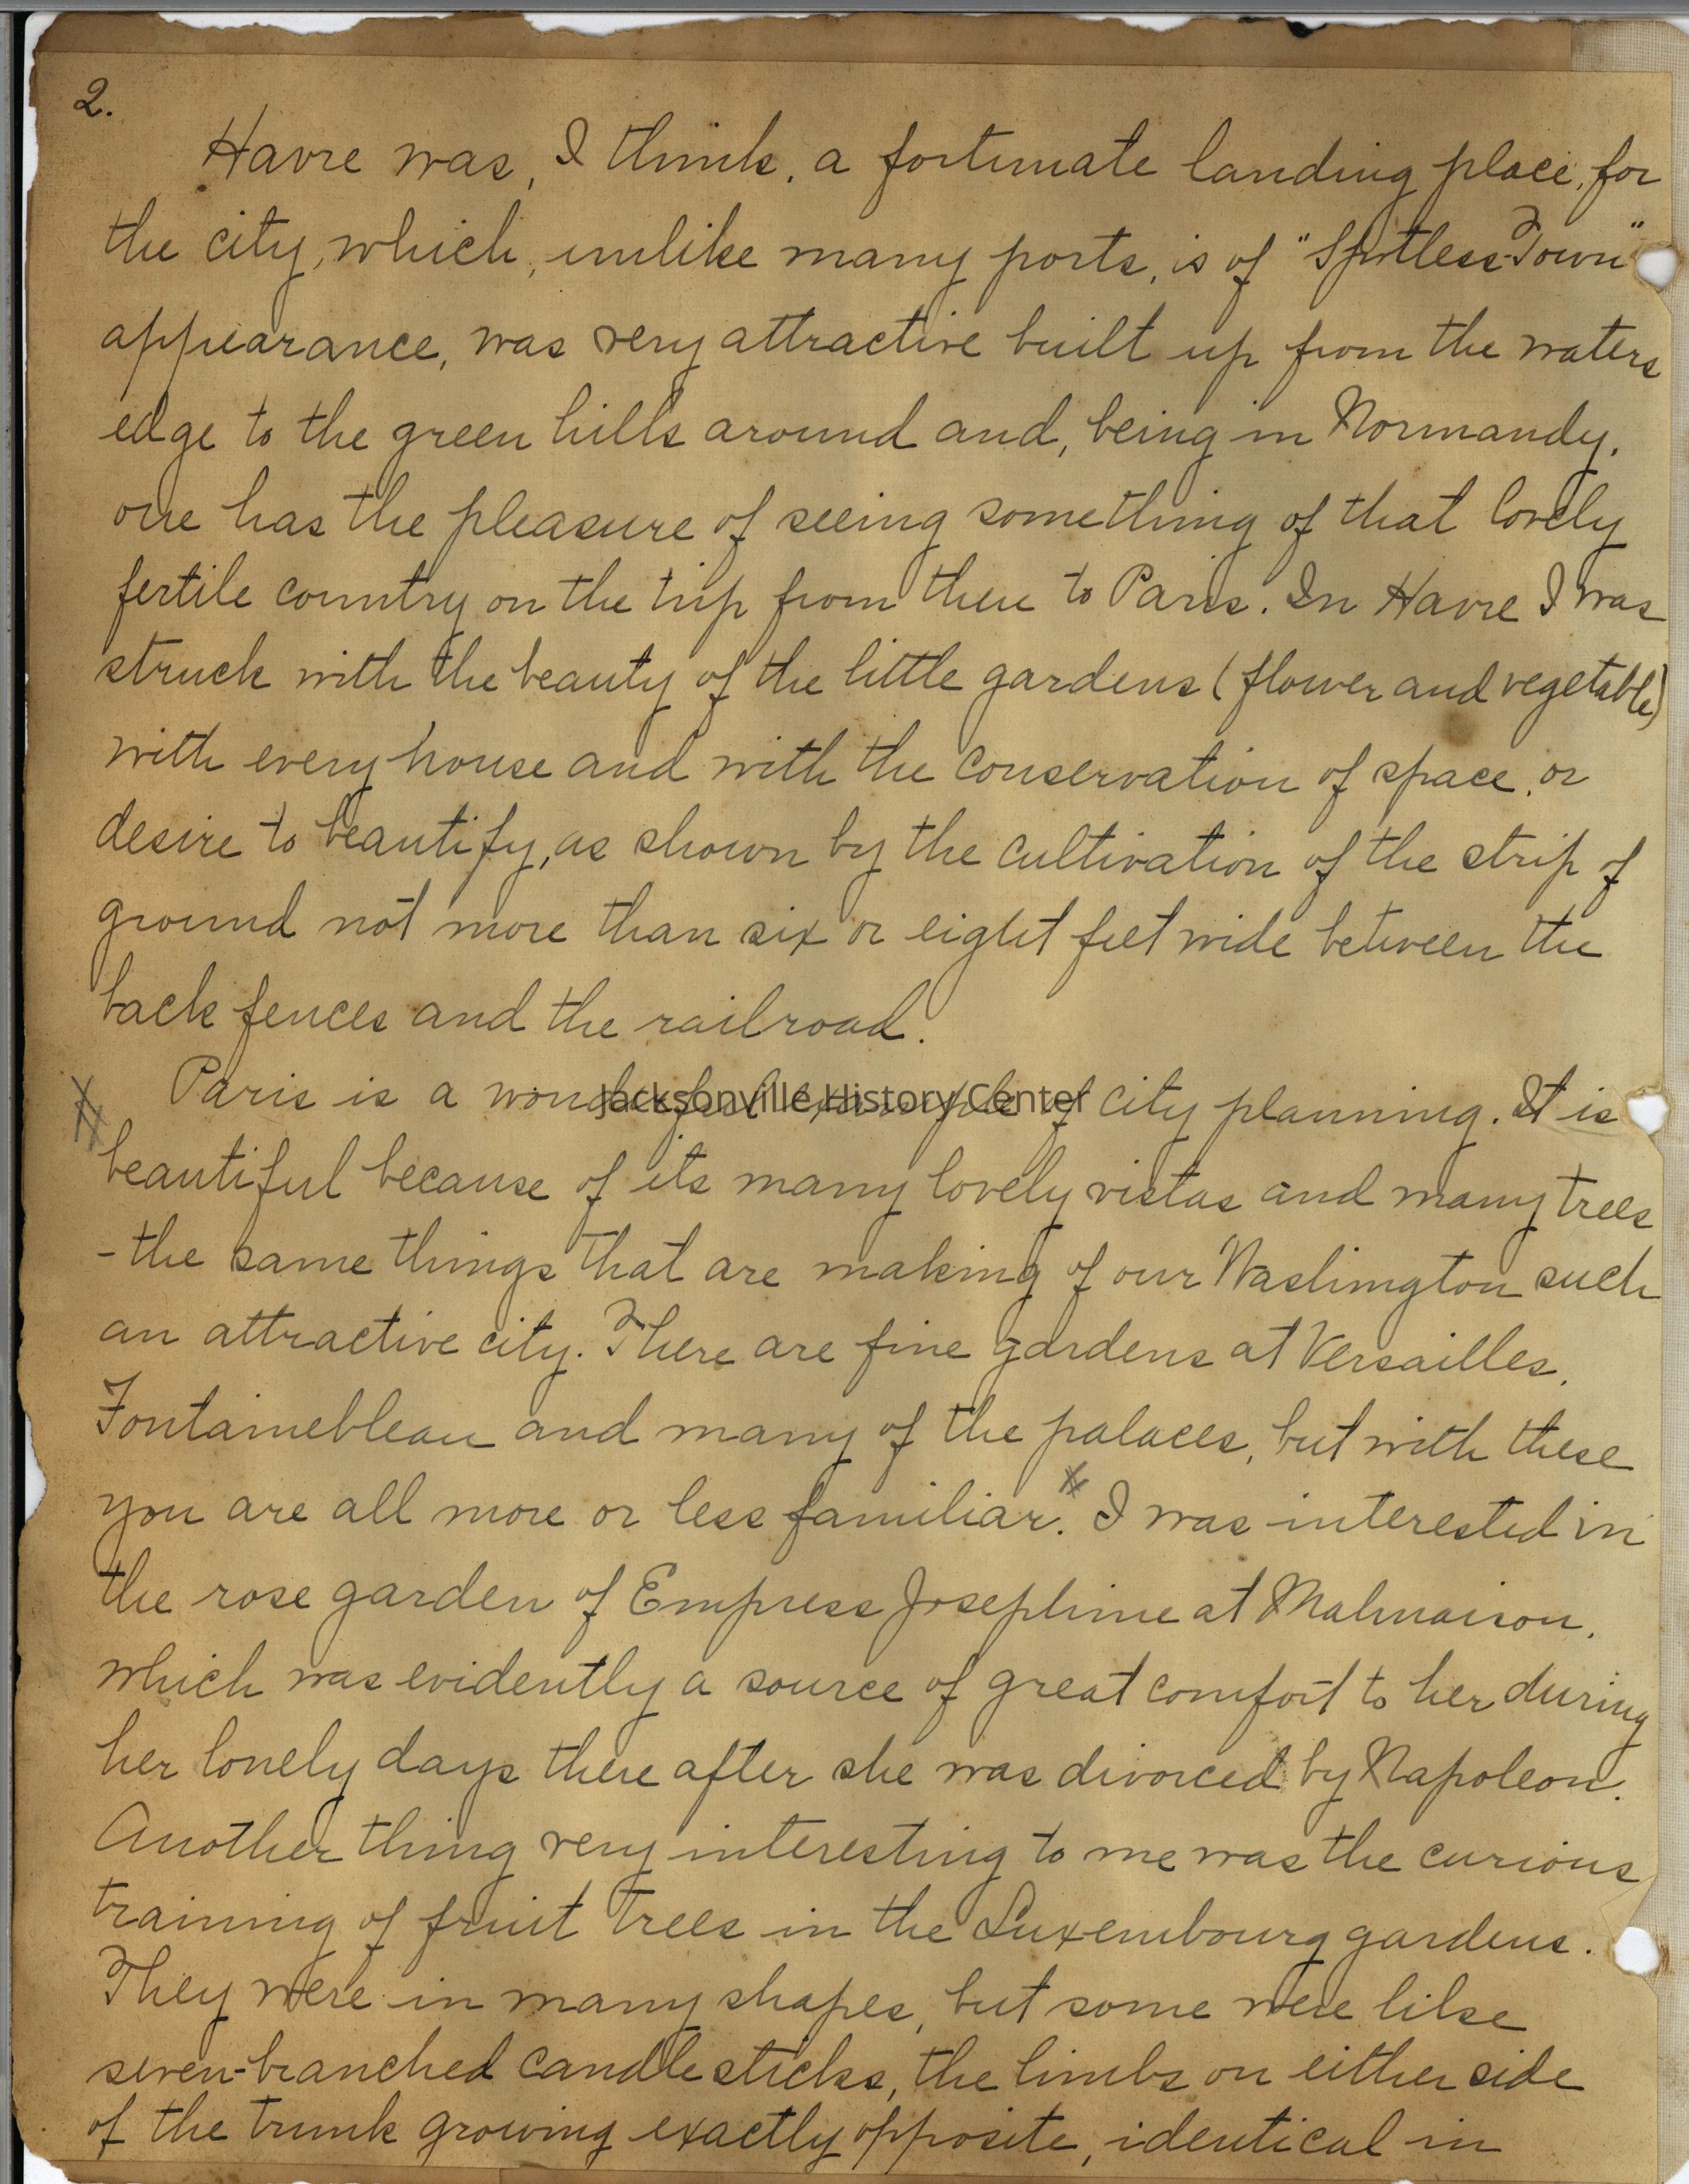 2.
Havre was, I think, a fortunate landing place, for
the city, which, unlike many ports, is of "Spotless-Town"
appearance, was very attractive built up from the waters
edge to the green hills around and, being in Normandy,
one has the pleasure of seeing something of that lovely
fertile country on the trip from there to Paris. In Havre I was
struck with the beauty of the little gardens (flower and vegetable)
with every house and with the conservation of space, or
desire to beautify, as shown by the cultivation of the strip of
ground not more than six or eight feet wide between the
back fences and the railroad.
Paris is a wonderful example of city planning. It is
Jacksonville History Center
beautiful because of its many lovely vistas and many trees
- the same things that are making of our Washington such
an attractive city. There are fine gardens at Versailles,
Fontainebleau and many of the palaces, but with these
you are all more or less familiar. I was interested in
the rose garden of Empress Josephine at Malmaison,
which was evidently a source of great comfort to her during
her lonely days there after she was divorced by Napoleon.
Another thing very interesting to me was the curious
training of fruit trees in the Luxembourg gardens.
They were in many shapes, but some were like
seven-branched candlesticks, the limbs on either side
of the trunk growing exactly opposite, identical in